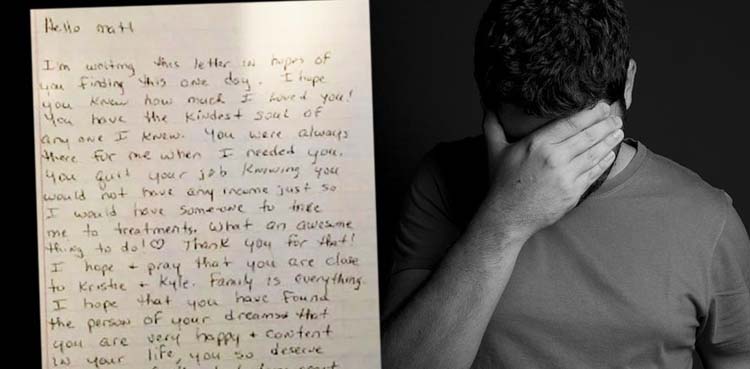 Hello Matt
I'm writing this letter in hopes of
you finding this one day. I hope
you know how much I loved you!
You have the kindest soul of
anyone I know. You were always
there for me when I needed you.
You quit your job knowing you
would not have any income just so
I would have someone to take
me to treatments. What an awesome
thing to do!♡ Thank you for that!
I hope + pray that you are close
to Kristie + Kyle. Family is everything.
I hope that you have found
the person of your dreams that
you are very happy + content
in your life, you so deserve